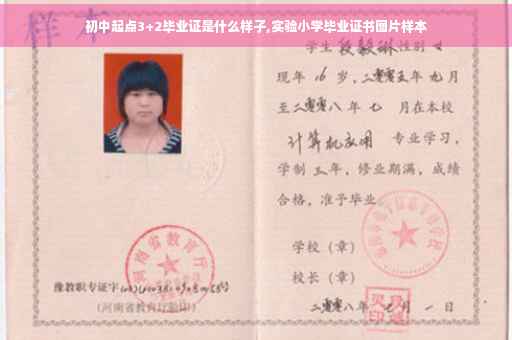 初中起点3+2毕业证是什么样子,实验小学毕业证书图片样本
样本
学生段毅琳性别女
现年16岁，二零零五年九月
至二零零八年七月在本校
计算机应用 专业学习，
学制三年，修业期满，成绩
合格，准予毕业
学校（章）
校长（章）
二零零八年七月一日
河南省教育厅
豫教职专证字
（河南省教育厅验印）